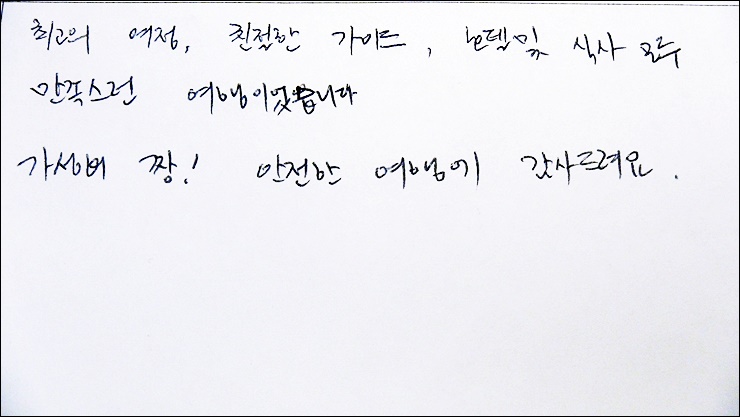 최고의 여정, 친절한 가이드, 호텔및 식사 모두
만족스런 여행이었습니다
가성비 짱! 안전한 여행에 감사드려요.